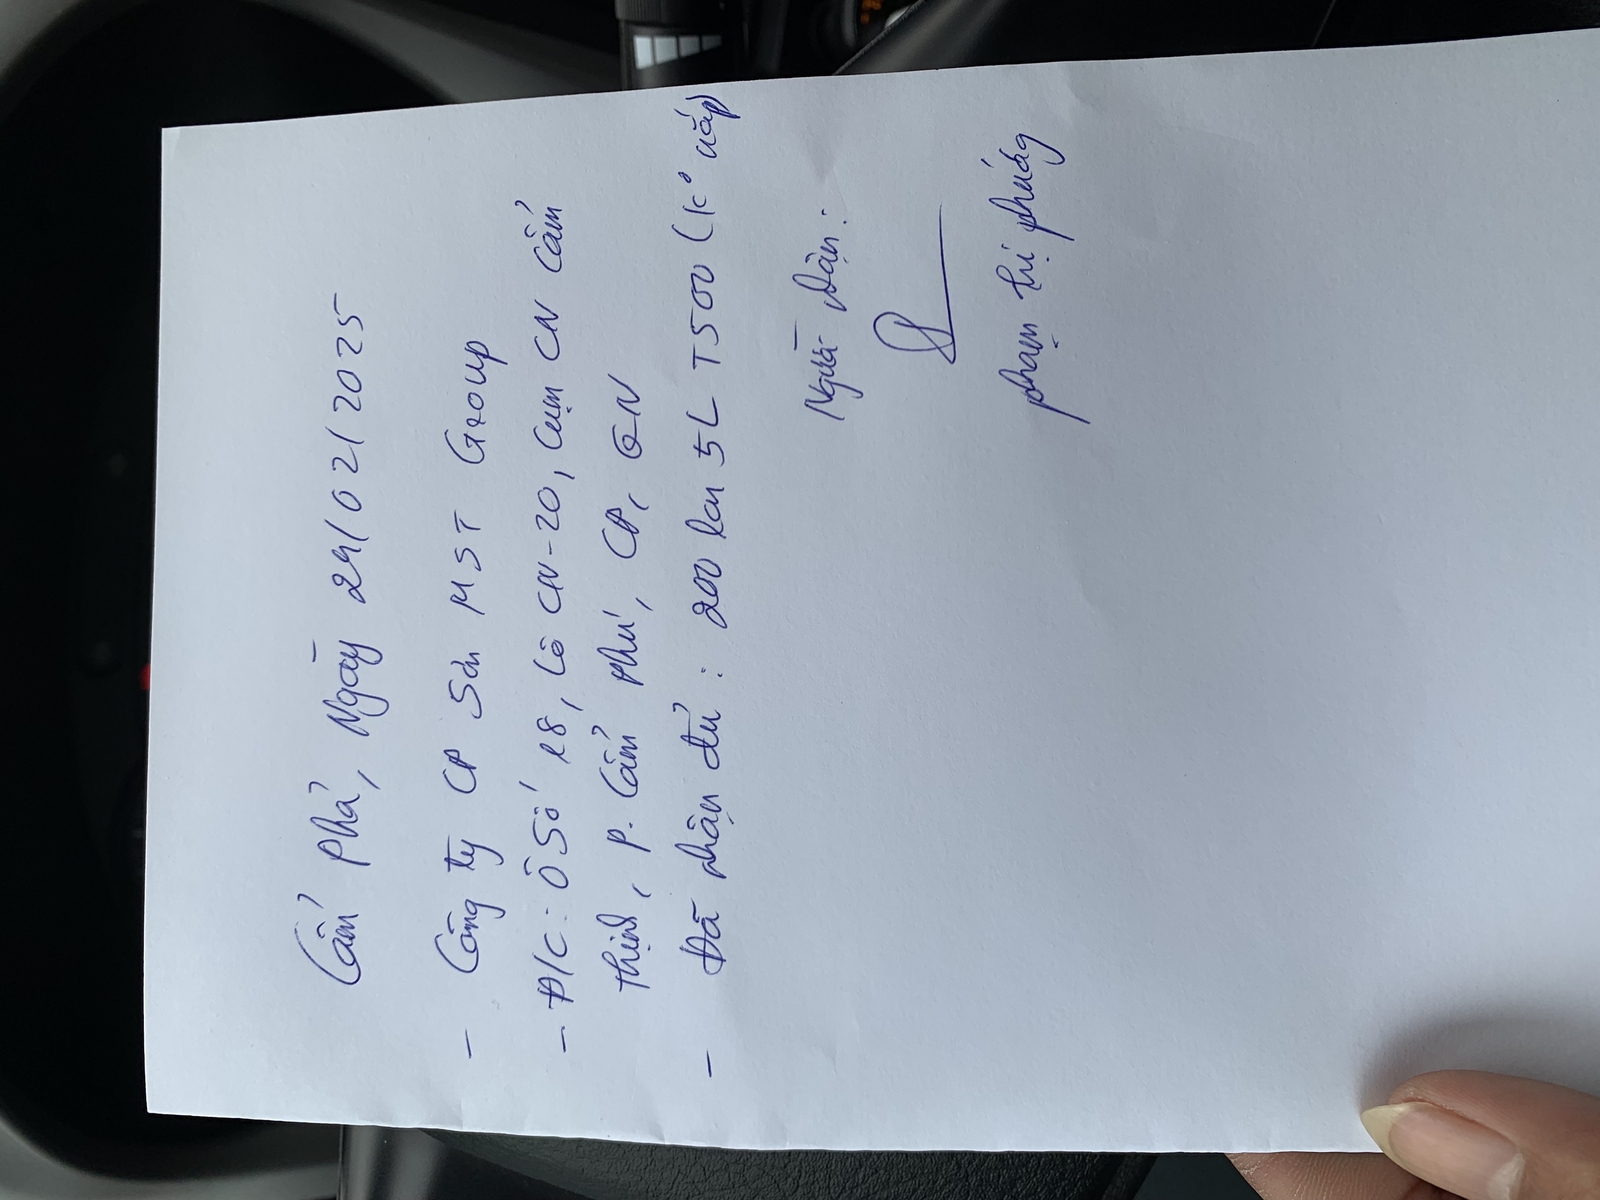 Cẩm Phả, Ngày 24/02/2025
- Công ty CP Sơn MST Group
- Đ/C: Ô Số 18, Lô CN-20, Cụm CN Cẩm
Thịnh, P. Cẩm Phú, CP, QN
- Đã nhận đủ: 200 lon 5L T500 (ko nắp)
Người nhận:
Phạm Thị